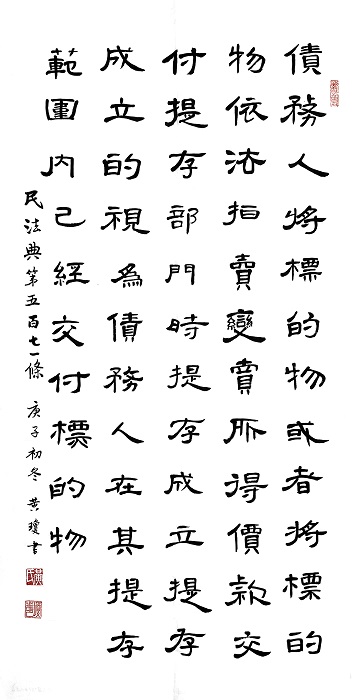 債務人將標的物或者將標的
物依法拍賣變賣所得價款交
付提存部門時提存成立提存
成立的視為債務人在其提存
範圍内已經交付標的物
民法典第五百七一條 庚子初冬 黄瓊書